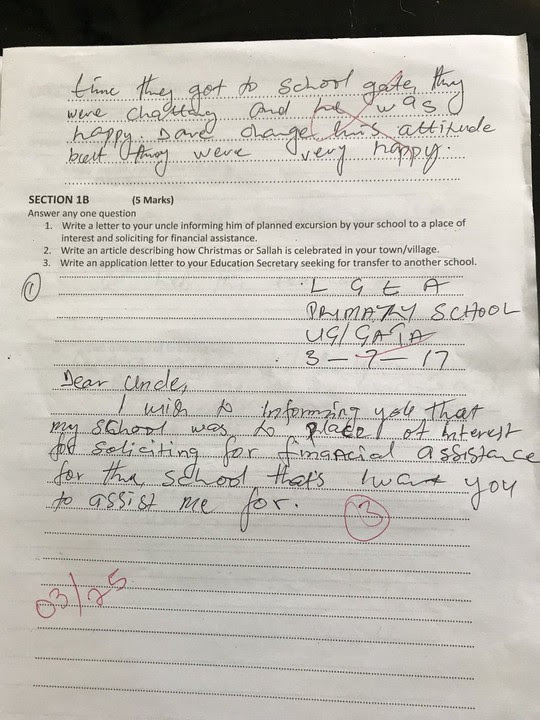 time they got to school gate, they
were chatting and he was
happy. Dave change his attitude
but they were very happy.
SECTION 1B (5 Marks)
Answer any one question
1. Write a letter to your uncle informing him of planned excursion by your school to a place of
interest and soliciting for financial assistance.
2. Write an article describing how Christmas or Sallah is celebrated in your town/village.
3. Write an application letter to your Education Secretary seeking for transfer to another school.
(1)
L G E A
PRIMARY SCHOOL
UG/GAIA
3-7-17
Dear Uncle,
I wish to informing you that
my school was to place of interest
for soliciting for financial assistance
for the school that's I want you
to assist me for.
3
03/25